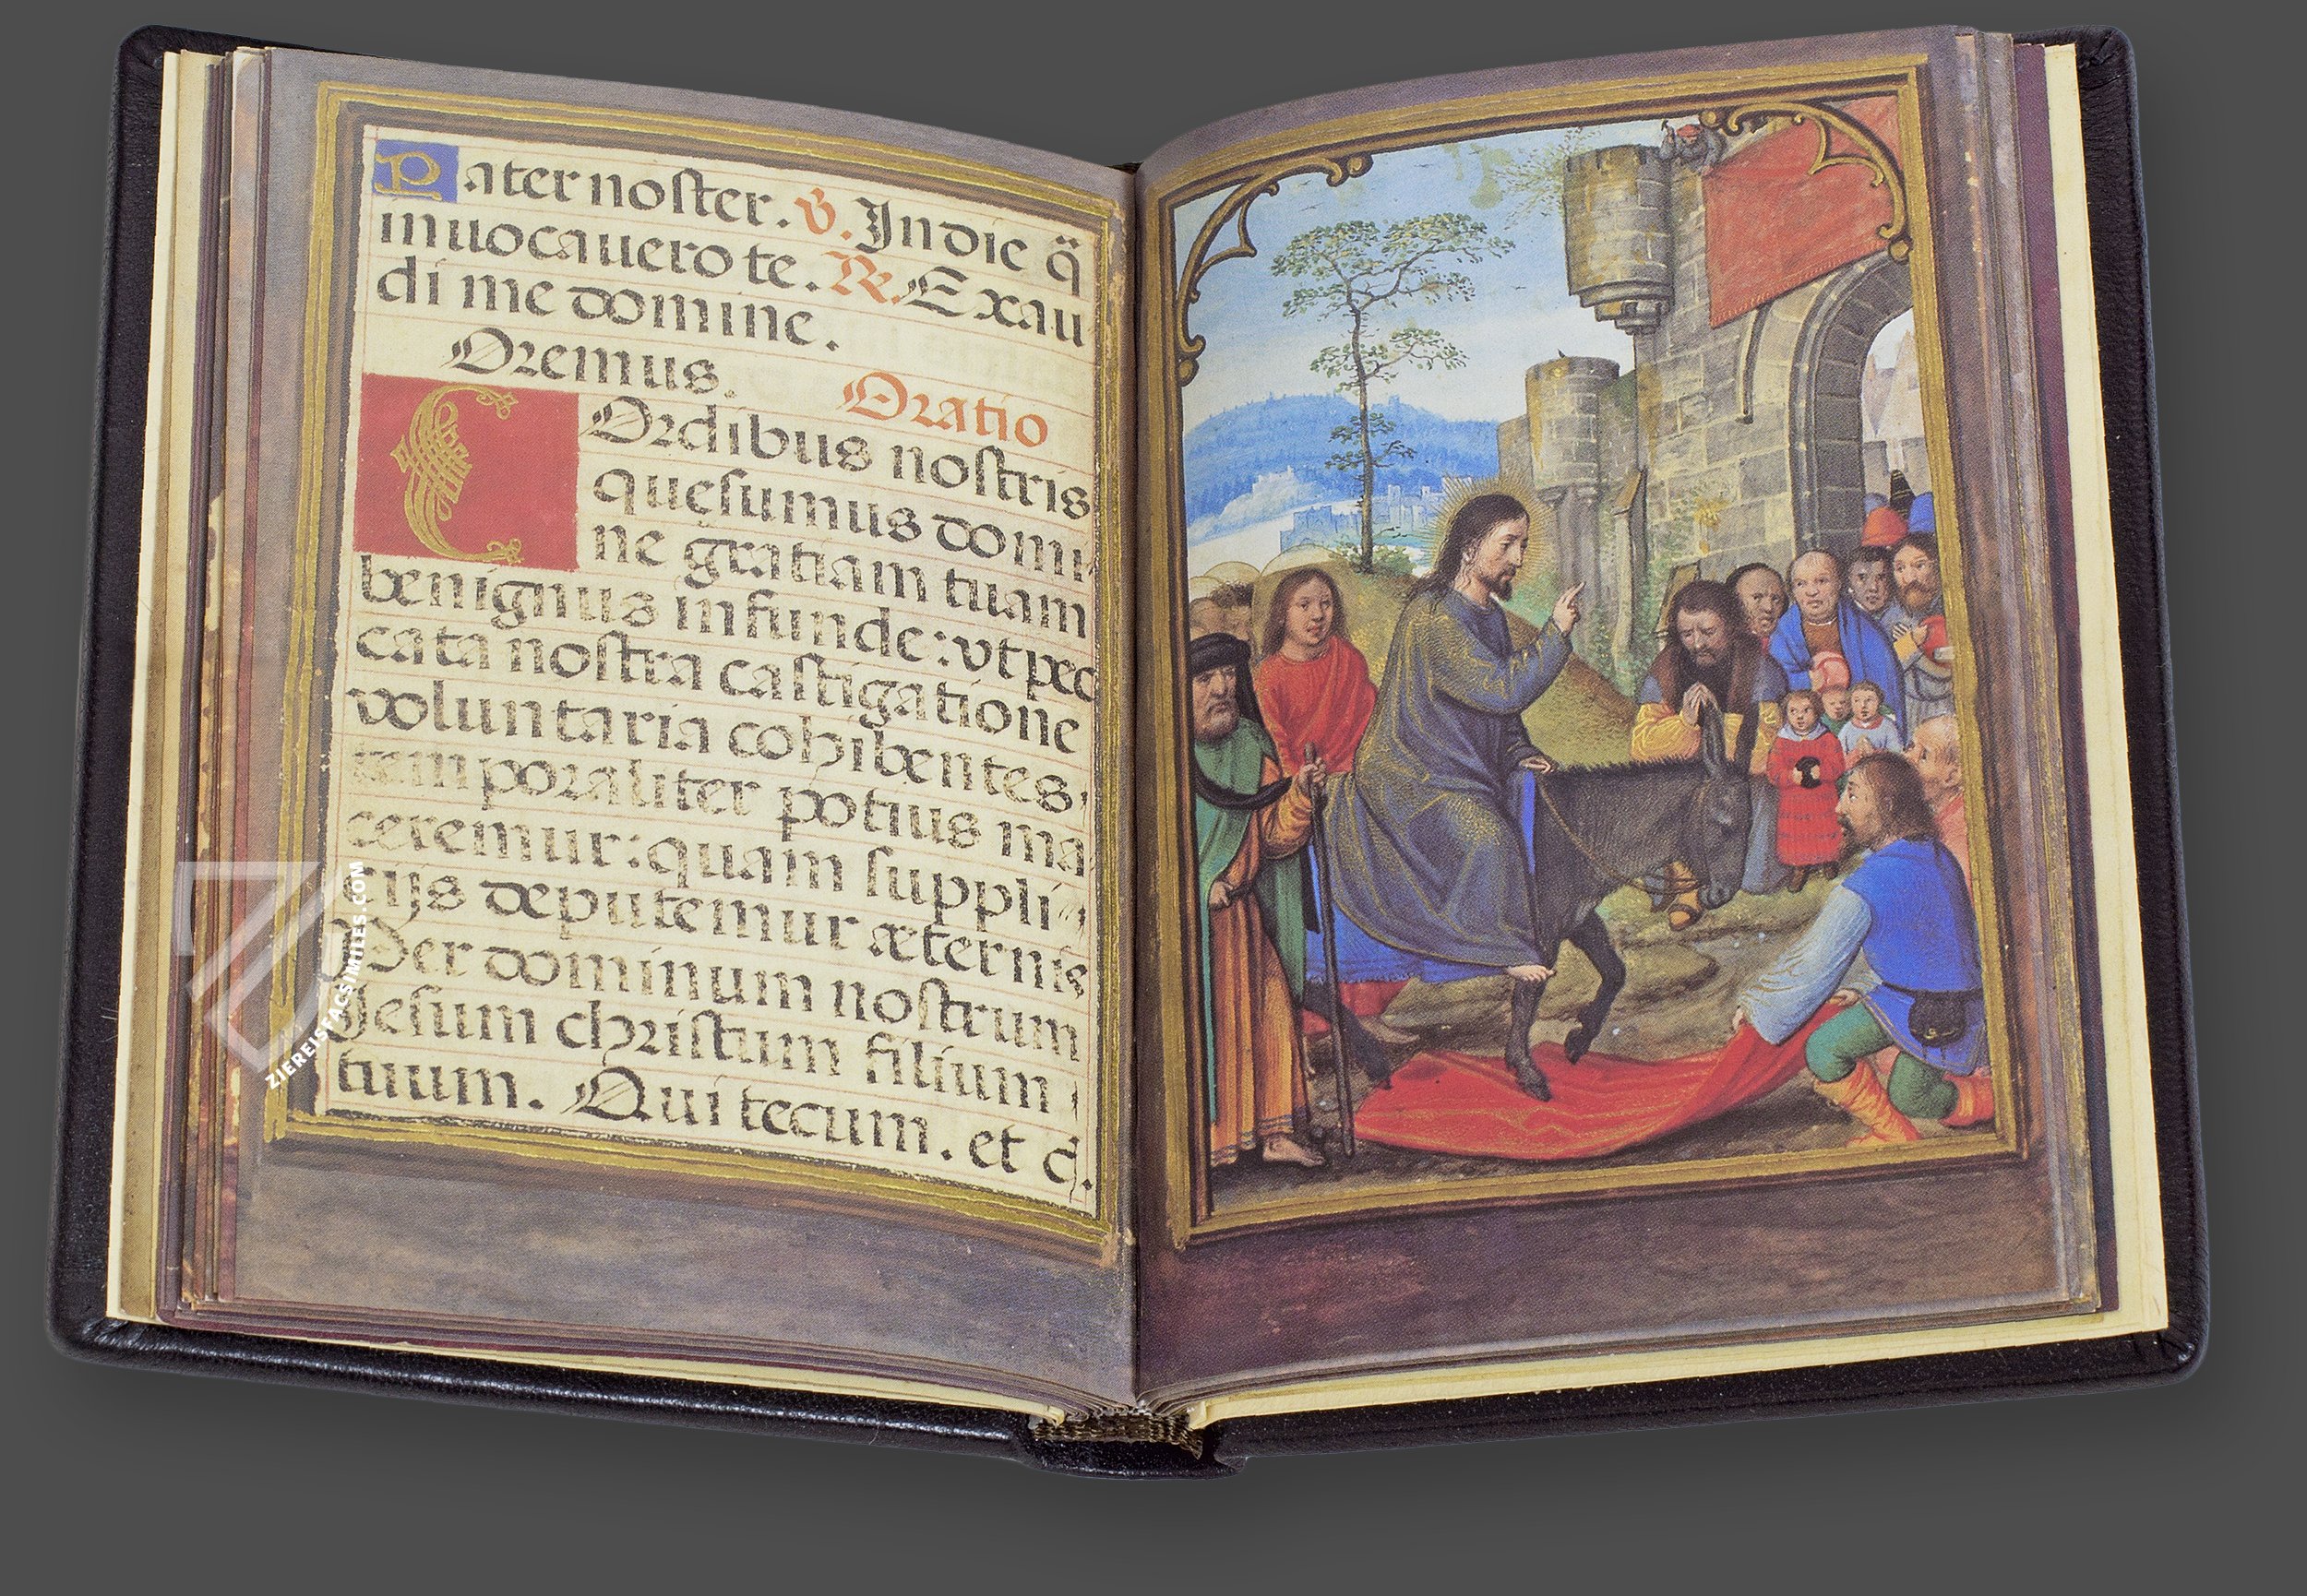 Pater noster. V. In die q̃
inuocauero te. R. Exau
di me domine.
Oremus. Oratio
COrdibus nostris
quesumus domi
ne gratiam tuam
benignus infunde: vt pec
cata nostra castigatione
voluntaria cohibentes
temporaliter potius ma
ceremur: quam suppli
cijs deputemur æternis
Per dominum nostrum
Jesum christum filium
tuum. Qui tecum. et q.
ZIEREISFACSIMILES.COM